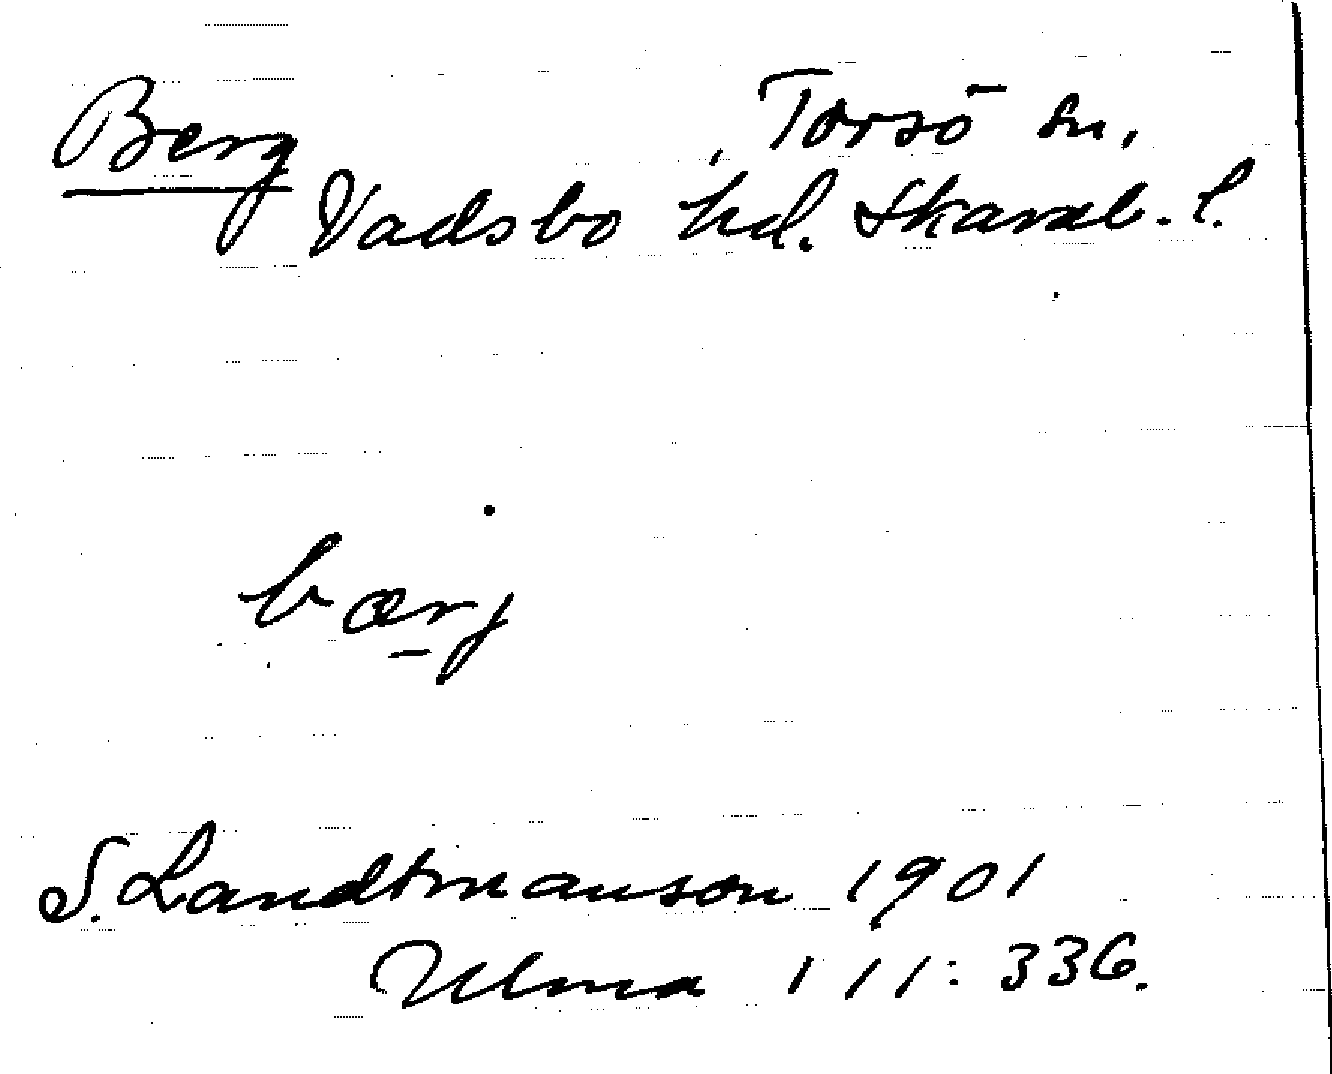 Berg, Torsö sn,
Vadsbo hd. Skarab. l.
bærj
S. Landtmanson 1901
Ulma 111:336.